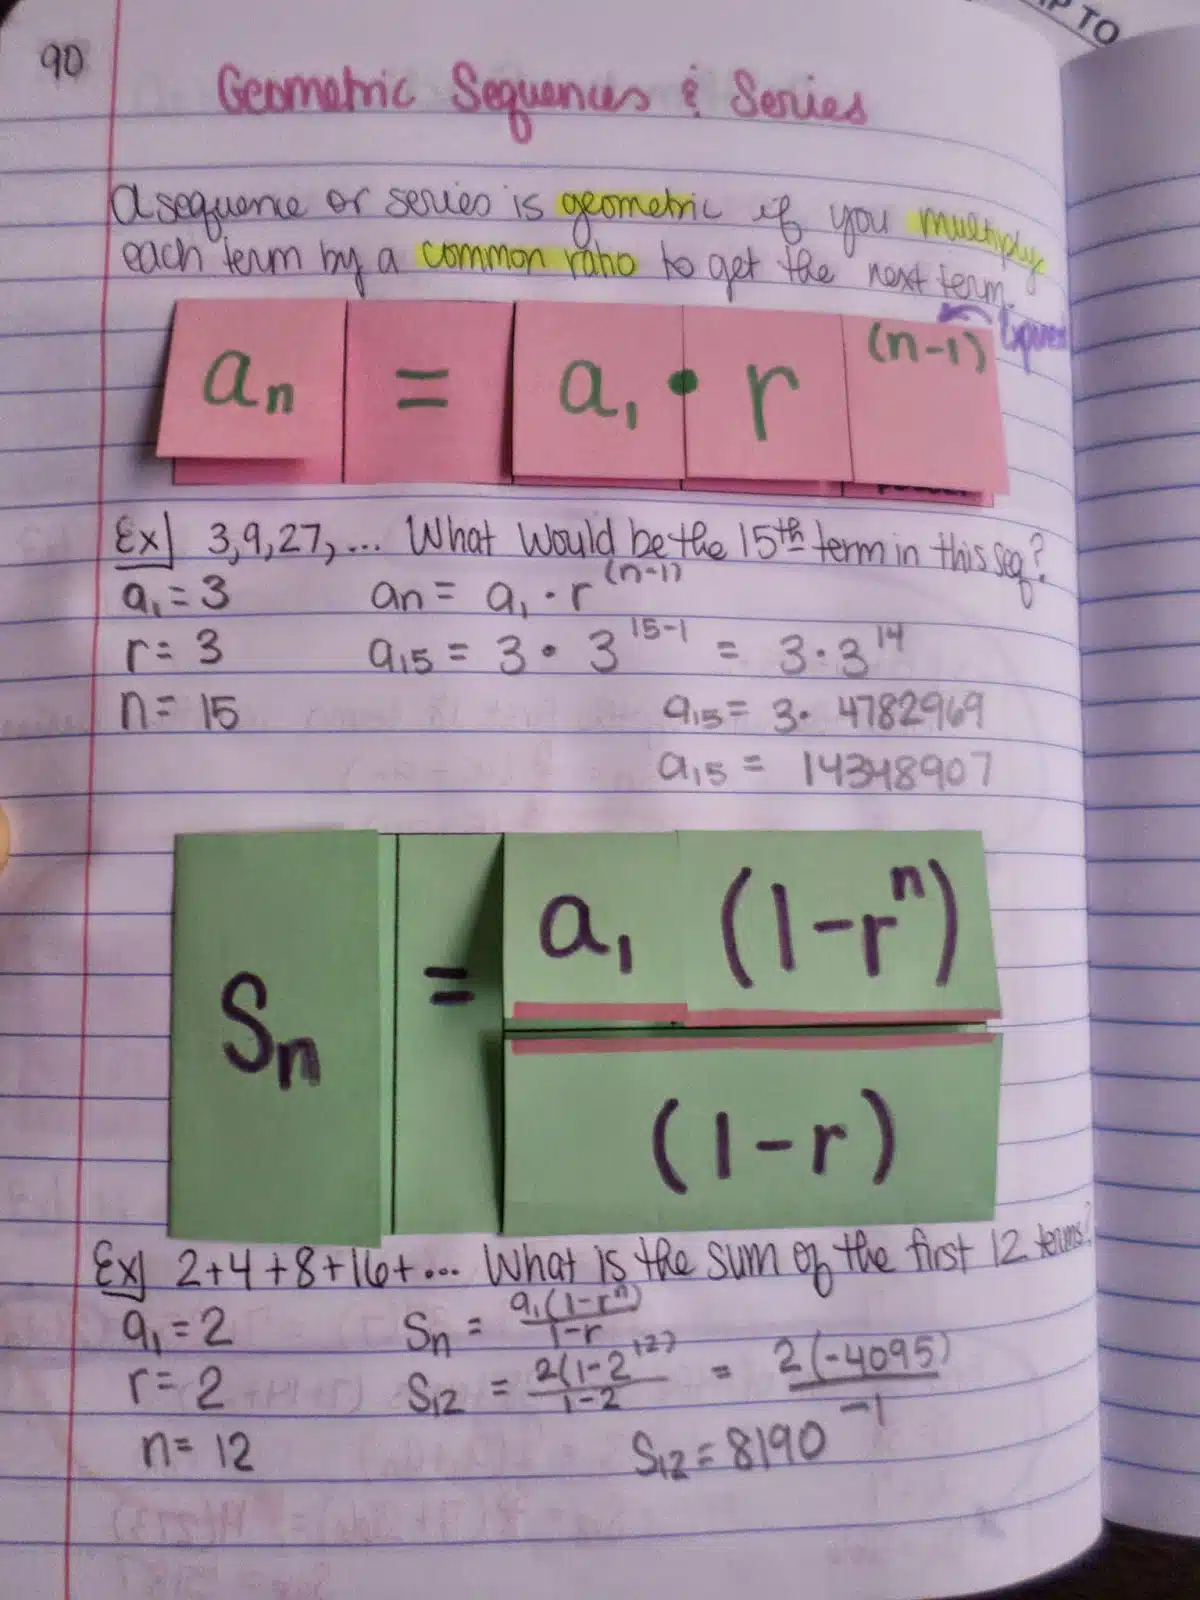 P TO
90
Geometric Sequences & Series
A sequence or series is geometric if you multiply
each term by a common ratio to get the next term.
Exponent
aₙ = a₁ • r (n-1)
Ex] 3,9,27,... What would be the 15th term in this seq?
a₁ = 3 aₙ = a₁ · r (n-1)
r = 3 a₁₅ = 3 • 3^15-1 = 3·3^14
n = 15 a₁₅ = 3· 4782969
a₁₅ = 14348907
Sₙ = a₁ (1-rⁿ)
(1-r)
Ex] 2+4+8+16+... What is the sum of the first 12 terms?
a₁ = 2 Sₙ = a₁(1-rⁿ) / 1-r
r = 2 S₁₂ = 2(1-2^12) / 1-2 = 2(-4095) / -1
n = 12 S₁₂ = 8190